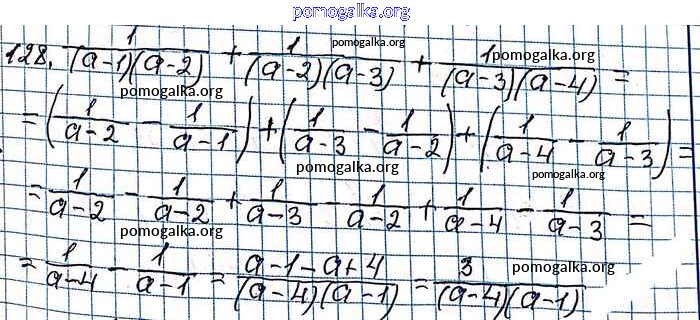 pomogalka.org
128. 1/((a-1)(a-2)) + 1/((a-2)(a-3)) + 1/((a-3)(a-4)) =
pomogalka.org pomogalka.org pomogalka.org
= (1/(a-2) - 1/(a-1)) + (1/(a-3) - 1/(a-2)) + (1/(a-4) - 1/(a-3)) =
pomogalka.org pomogalka.org pomogalka.org
= 1/(a-2) - 1/(a-2) + 1/(a-3) - 1/(a-2) + 1/(a-4) - 1/(a-3) =
pomogalka.org pomogalka.org
= 1/(a-4) - 1/(a-1) = (a-1-a+4)/((a-4)(a-1)) = 3/((a-4)(a-1))
pomogalka.org pomogalka.org